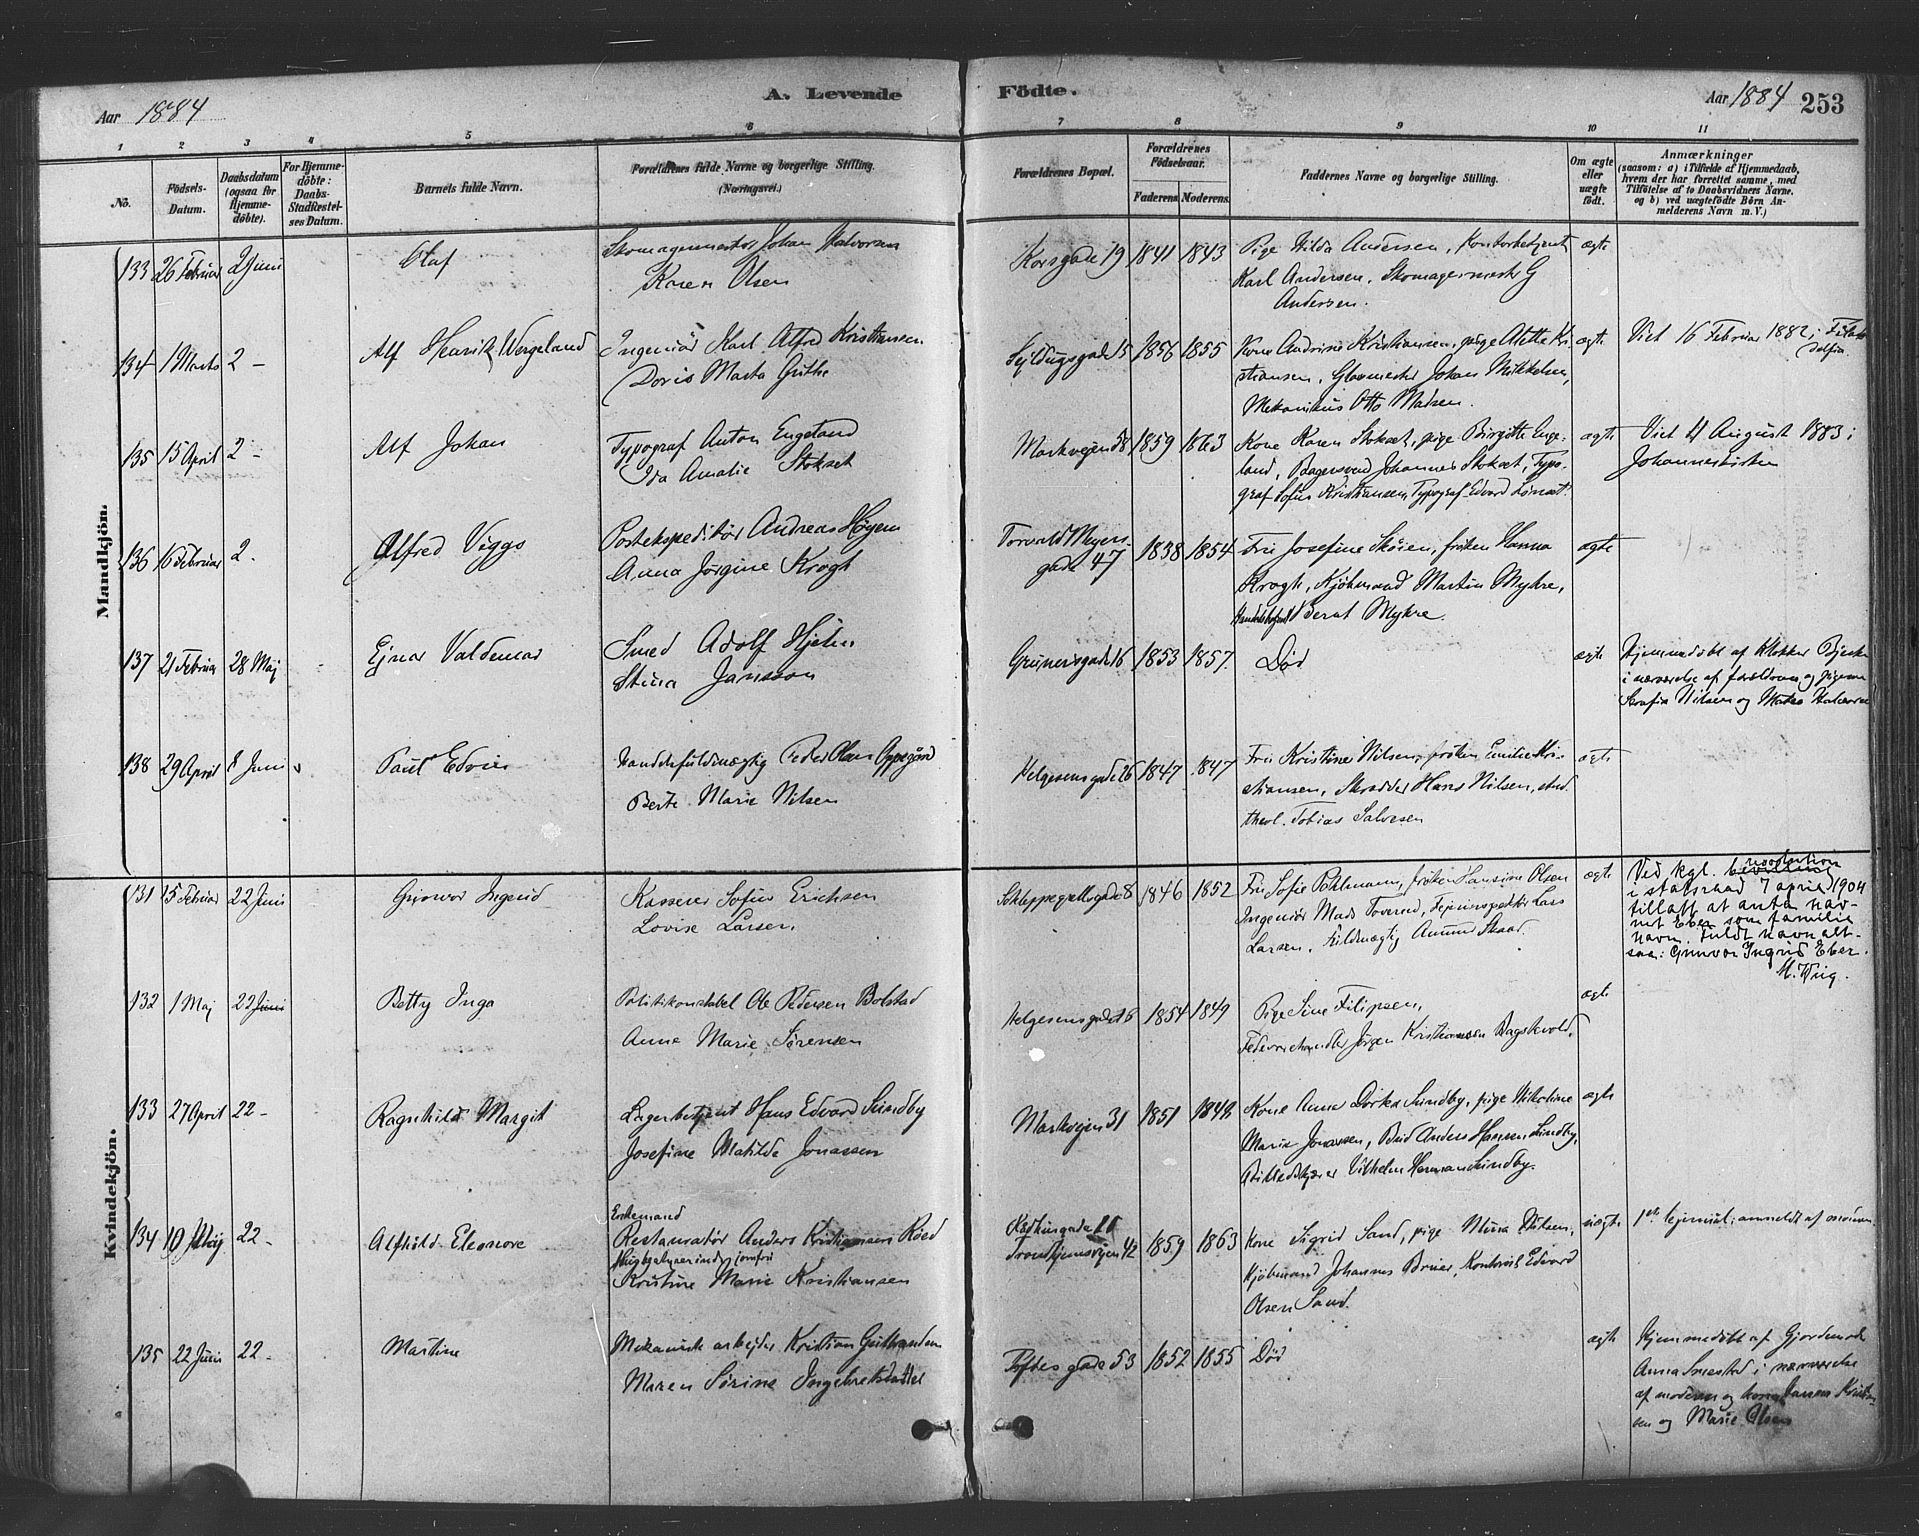 Aar 1884
A. Levende
Födte.
Aar 1884 253
1 2 3 4 5 6 7 8 9 10 11
No.
Födsels-
Datum.
Daabsdatum
(ogsaa for
Hjemme-
döbte).
For Hjemme-
döbte:
Daabs-
Stadfæstel-
ses Datum.
Barnets fulde Navn.
Forældrenes fulde Navne og borgerlige Stilling.
(Næringsvei.)
Forældrenes Bopæl.
Forældrenes
Födselsaar.
Faderens. Moderens.
Faddernes Navne og borgerlige Stilling.
Om ægte
eller
uægte
födt.
Anmærkninger
(saasom: a) i Tilfælde af Hjemmedaab,
hvem der har forrettet samme, med
Tilföielse af to Daabsvidners Navne,
og b) ved uægtefödte Börn An-
melderens Navn m. V.)
Mandkjön.
133 26 Februar 2 Juni Olaf
Skomagermester Johan Halvorsen
Karen Olsen
Korsgade 19 1841 1843
Pige Hilda Andersen, Kontorbetjent
Karl Andersen, Skomagermester G
Andersen.
ægte
134 1 Marts 2 - Alf Henrik Wergeland
Ingeniör Karl Alfred Kristiansen
Doris Marta Grithe
1856 1855
Kone Andrine Kristiansen, pige Atetta Kri-
stiansen, Glasmester Johan Mikkelsen,
Mekanikus Otto Madsen.
ægte
Viet 16 Februar 1882 i Fila-
delfia.
135 15 April 2 - Alf Johan
Typograf Anton Engeland
Ida Amalie Stokset
Markvejen 58 1859 1863
Kone Karen Stokset, pige Birgitte Enge-
land, Bagersvend Johannes Stokset, Typo-
graf Sofus Kristiansen, Typograf Edvard
ægte
Viet 4 August 1883 i
Johanneskirken
136 16 Februar 2 - Alfred Viggo
Postekspeditör Andreas Höyem
Anna Jörgine Krogh
Torvald Meyers
gade 47 1838 1854
Fru Josefine Sköien, fröken Hanna
Krogh, Kjöbmand Martin Myhre,
Myhre.
ægte
137 21 Februar 28 Maj Ejnar Valdemar
Smed Adolf Hjelm
Stina Jansson
Grunersgade 16 1853 1857
Död
ægte
Hjemmedöbt af Klokker
i nærværelse af forældrene og pigerne
Serafia Nilsen og
138 29 April 8 Juni Paul Edvin
Handelsfuldmægtig Peder Olsen Oppegård
Berte Marie Nilsen
Helgesensgade 26 1847 1847
Fru Kristine Nilsen, fröken Emilie Kri-
stiansen, Skrædder Hans Nilsen, stud.
theol. Tobias Salvesen
ægte
Kvindekjön.
131 15 Februar 22 Juni Gunvor Ingrid
Kasserer Sofus Erichsen
Lovise Larsen
Schleppegrellsgade 8 1846 1852
Fru Sofie Pohlmann, fröken Hansine Olsen
Ingeniör Mads Toverud, Lars
Larsen, Fuldmægtig Amund Skaad.
ægte
resolution
Ved kgl. bevilling
i statsraad 7 april 1904
tillatt at anta nav-
net Eber som familie
navn. Fuldt navn alt-
saa: Gunvor Ingrid Eber.
M. Wiig.
132 1 Maj 22 Juni Betty Inga
Politikonstabel Ole Pedersen Bolstad
Anne Marie Sörensen
Helgesensgade 16 1854 1849
Pige Sine Filipsen,
Fedevarehandler Jörgen Kristiansen Bagskvold.
ægte
133 27 April 22 - Ragnhild Margit
Lagerbetjent Hans Edvard Sundby
Josefine Matilde Jonassen
Markvejen 31 1851 1848
Kone Anna Dorthea Sundby, pige Nikoline
Marie Jonassen, Bud Anders Hansen Sundby,
Vilhelm Herman Sundby.
ægte
134 10 Maj 22 - Alfhild Eleonore
Enkemand
Restauratör Anders Kristiansen Röed
jomfru
Kristine Marie Kristiansen
Trondhjemsvejen 42 1859 1863
Kone Sigrid Sand, pige Mina Nilsen,
Kjöbmand Johannes Bruer, Kontorist Edvard
Olsen Sand.
uægte
1ste lejermål; anmeldt af moderen.
135 22 Juni 22 - Martine
Mekanisk arbejder Kristian Guttormsen
Maren Sörine Ingebretsdatter
Toftesgade 53 1852 1855
Död
ægte
Hjemmedöbt af Gjordemoder
Anna Smestad i nærværelse
af moderen og kona Kristian-
sen og Marie Olsen